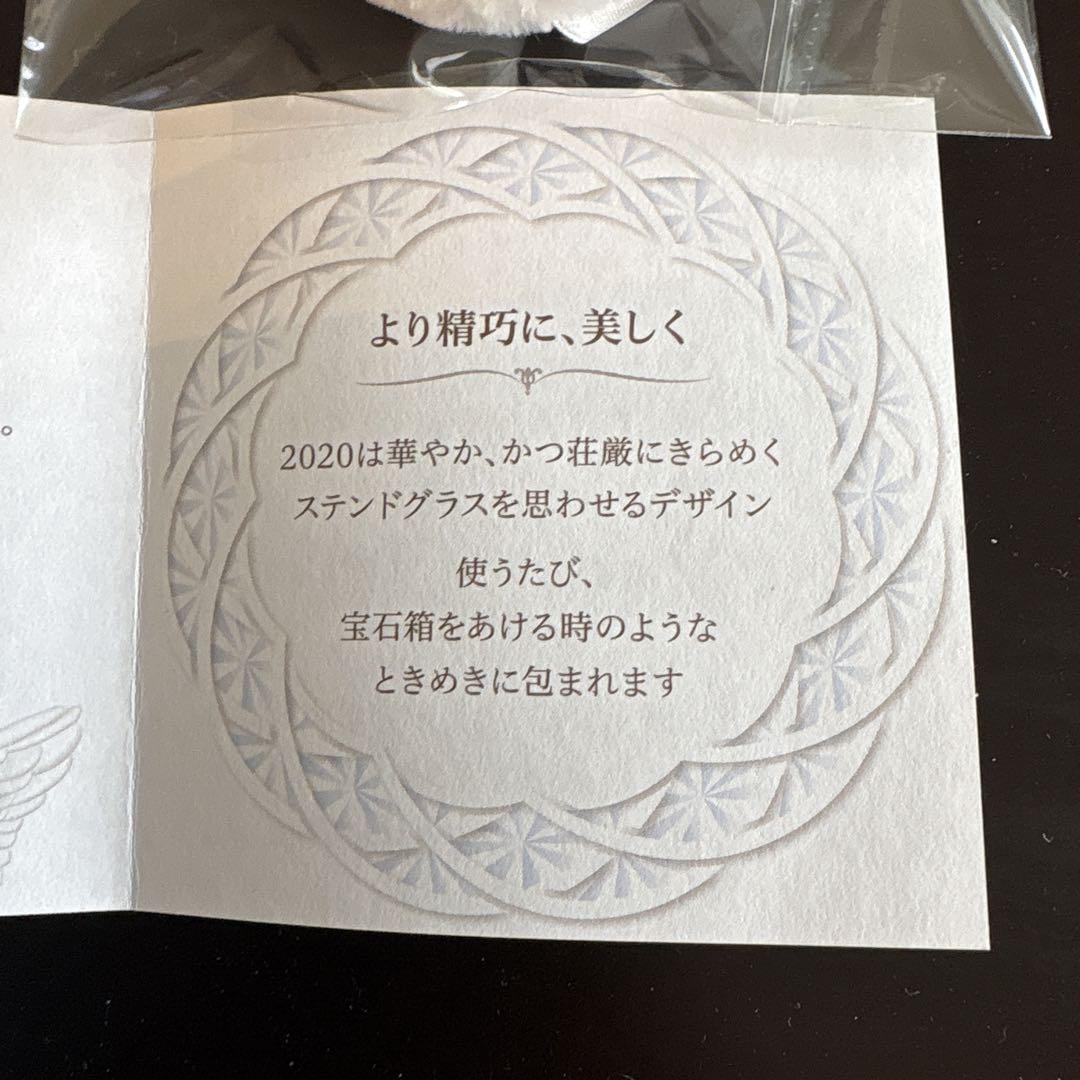 より精巧に、美しく
2020は華やか、かつ荘厳にきらめく
ステンドグラスを思わせるデザイン
使うたび、
宝石箱をあける時のような
ときめきに包まれます
。